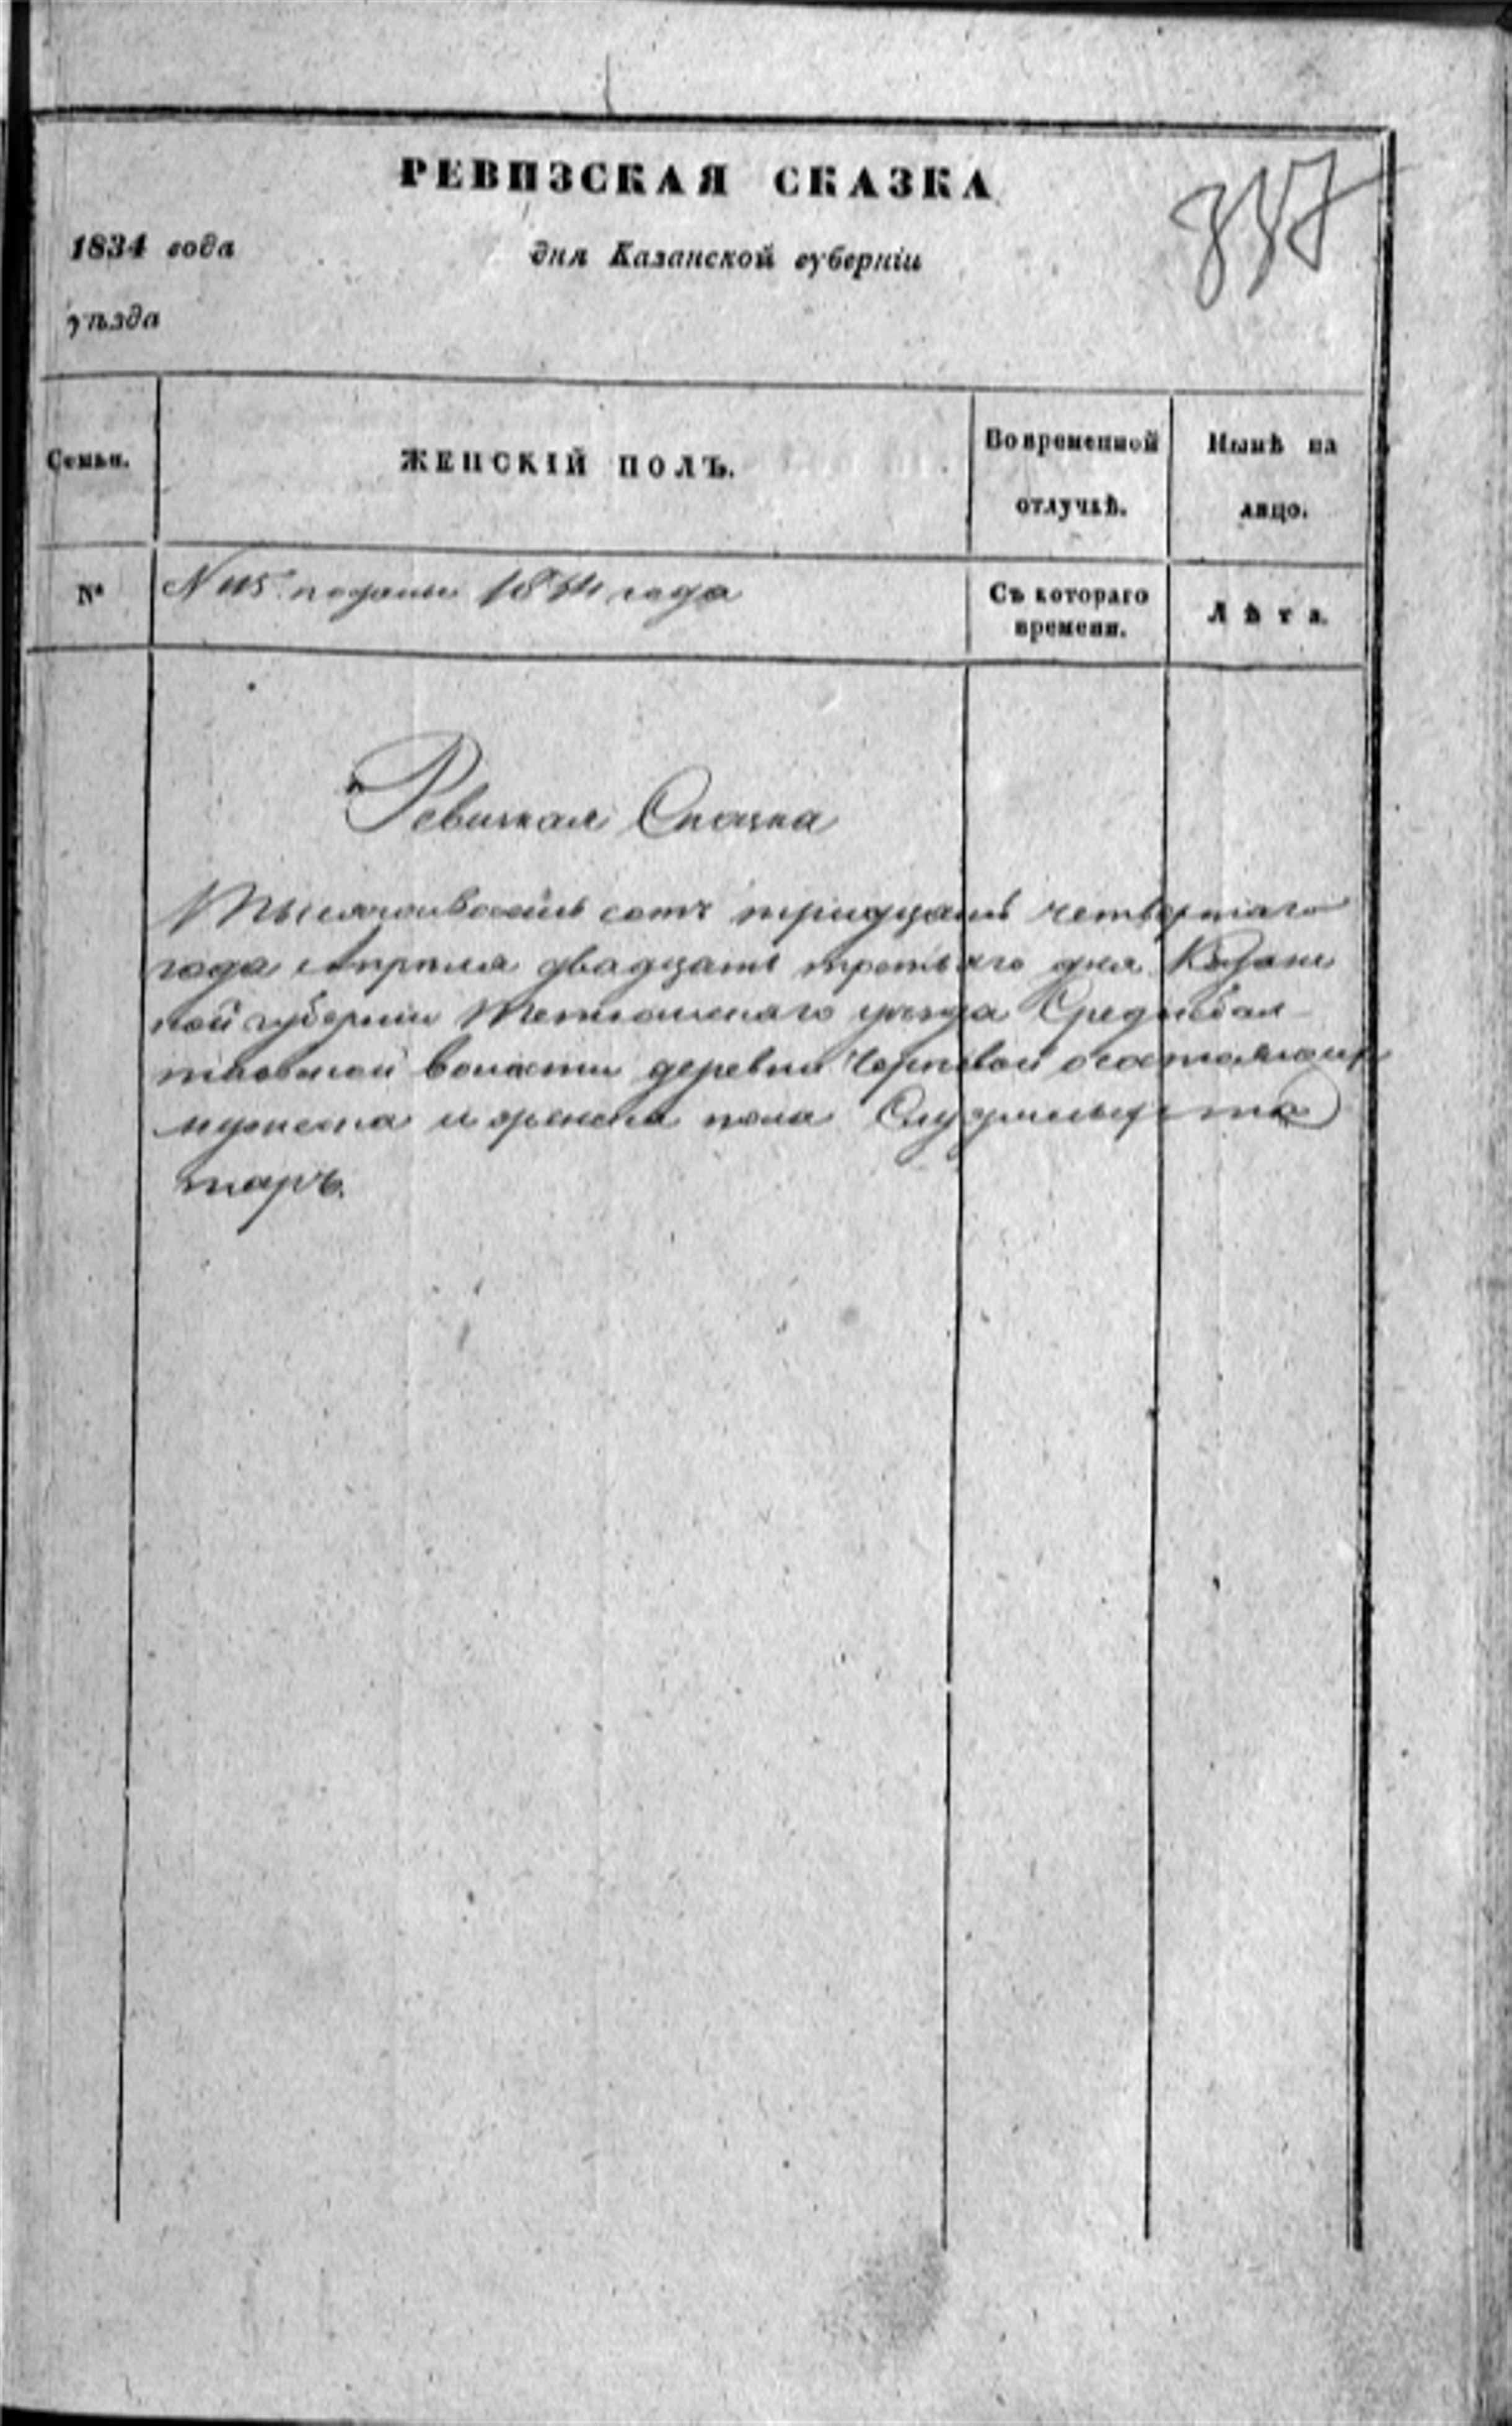 РЕВИЗСКАЯ СКАЗКА
1834 года
дня Казанской губерніи
уѣзда
Семьи.
ЖЕНСКІЙ ПОЛЪ.
Во временной отлучкѣ.
Нынѣ на лицо.
№
года
Съ котораго времени.
Лѣта.
Ревизкая Сказка
Тысяча восемь сотъ тридцать четвертаго
года Апреля двадцать третьяго дня Казан
кой губернии Тетюшскаго уезда Средне
волости деревни о состоящихъ
мужеска и женска пола Служилыхъ та
таръ.